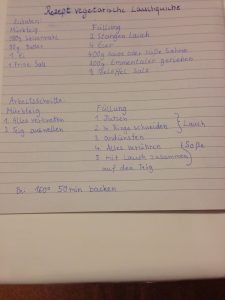 Rezept vegetarische Lauchquiche
Zutaten:
Mürbteig Füllung
Weizenmehl 2 Stangen Lauch
Butter 4 Eier
1 Ei 400g saure oder süße Sahne
1 Prise Salz 200g Emmentaler gerieben
Teelöffel Salz
Arbeitsschritte:
Mürbteig Füllung
1. Alles verkneten 1. Putzen
2. Teig 2. in Ringe schneiden } Lauch
3. andünsten
4. Alles verrühren } Soße
5. mit Lauch zusammen
auf den Teig
Bei 160° 50 min backen